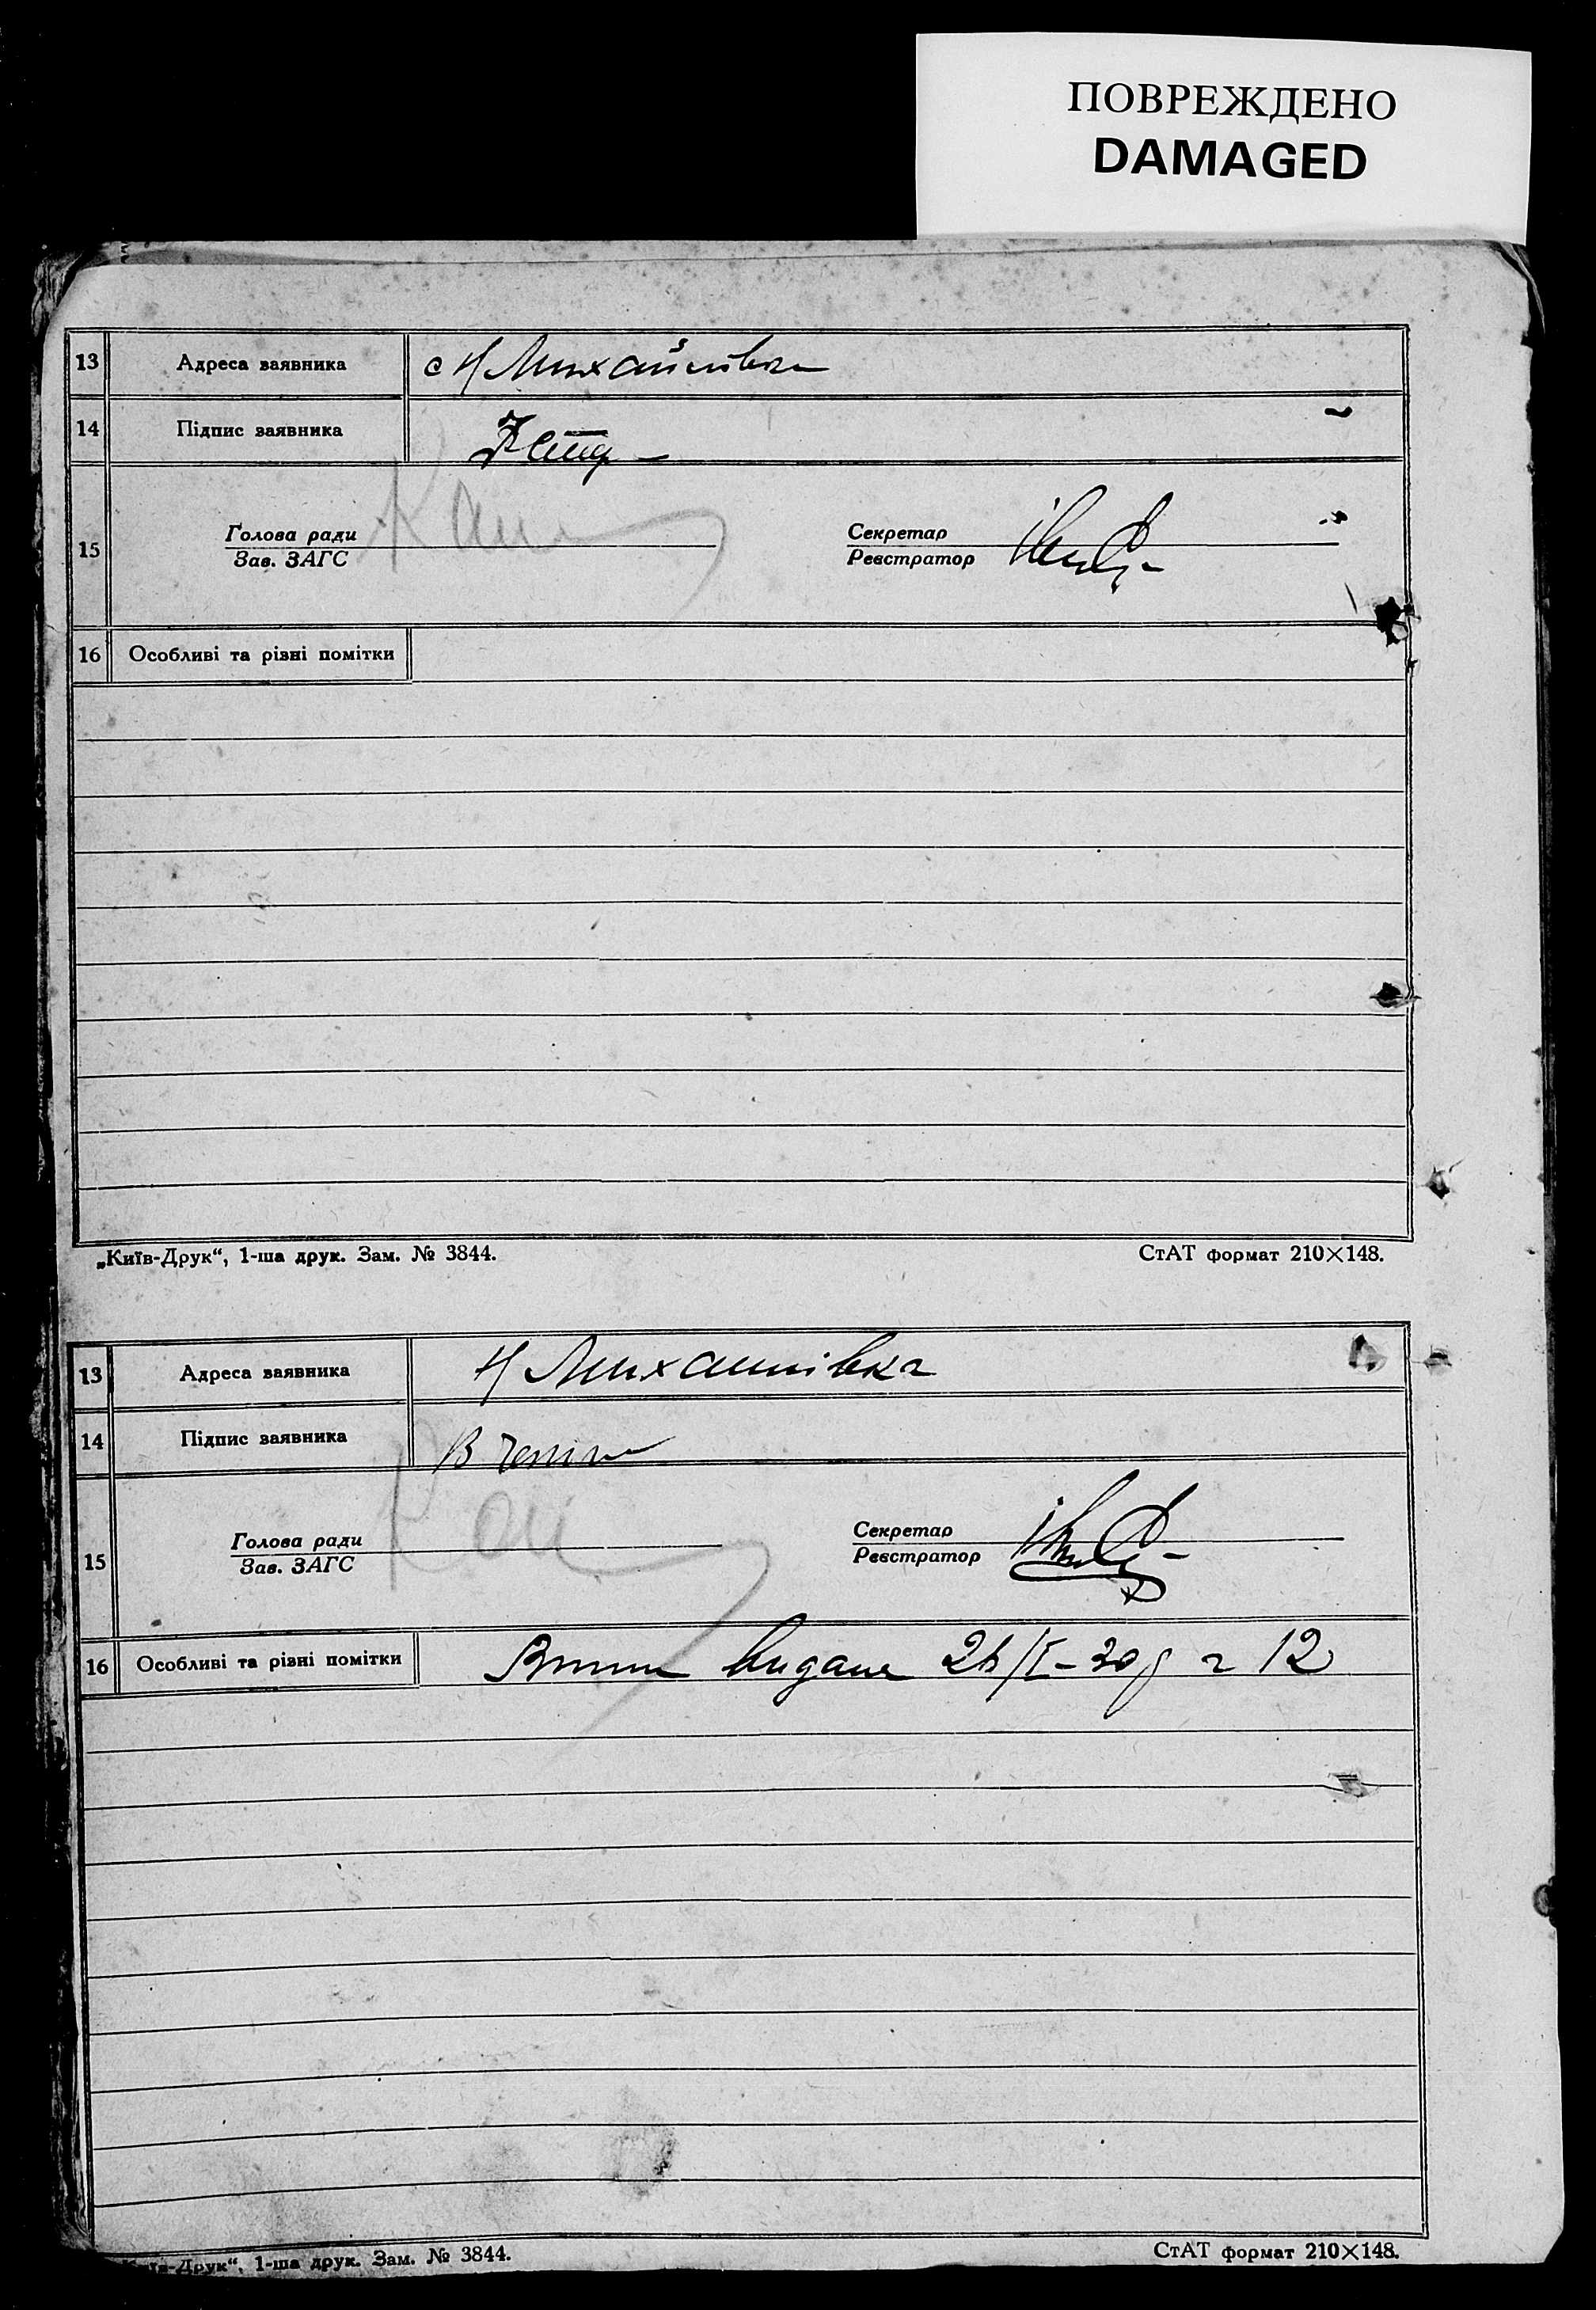 ПОВРЕЖДЕНО
DAMAGED
13 Адреса заявника с Н Михайлівка
14 Підпис заявника
15 Голова ради Секретар
Зав. ЗАГС Реєстратор
16 Особливі та різні помітки
„Київ-Друк“, 1-ша друк. Зам. № 3844. СтАТ формат 210×148.
13 Адреса заявника Н Михайлівка
14 Підпис заявника
15 Голова ради Секретар
Зав. ЗАГС Реєстратор
16 Особливі та різні помітки видана 12
Київ-Друк“, 1-ша друк. Зам. № 3844. СтАТ формат 210×148.